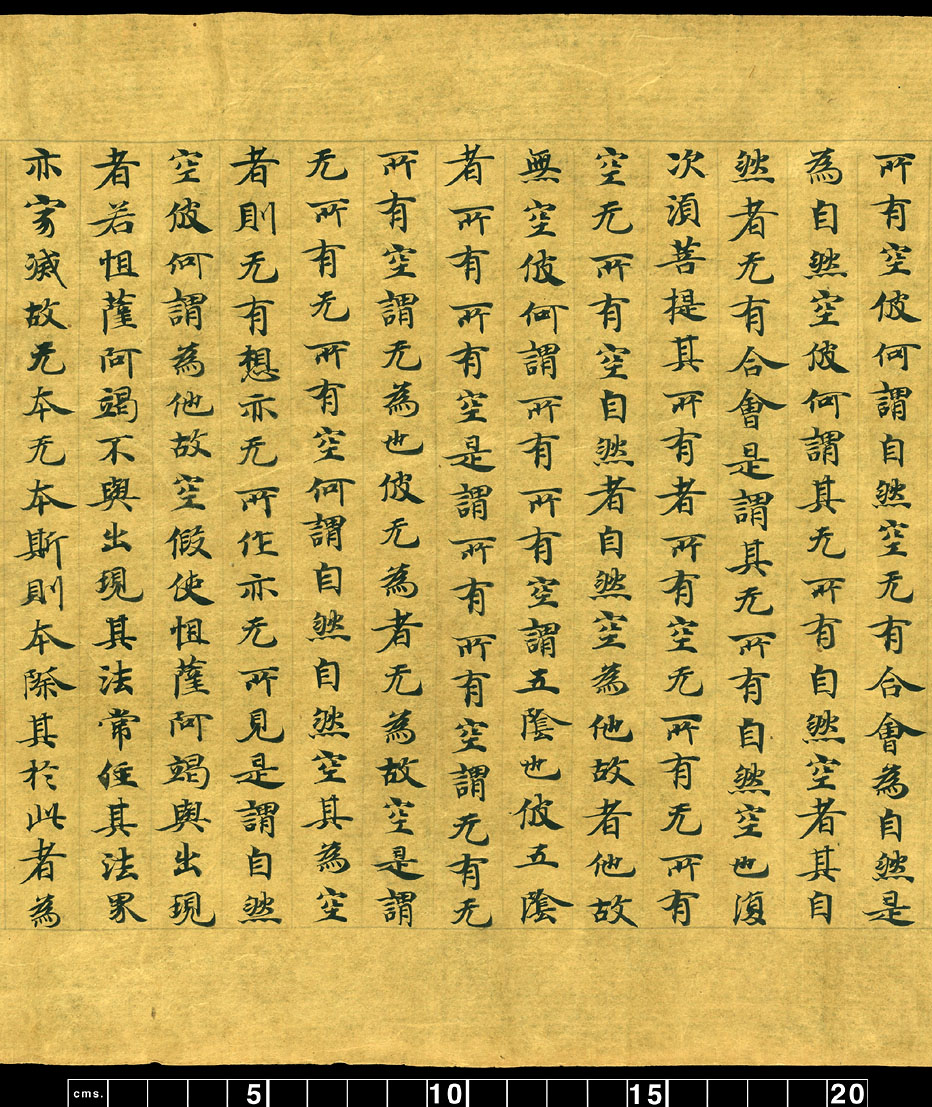 所有空彼何謂自然空无有合會為自然是
為自然空彼何謂其无所有自然空者其自
然者无有合會是謂其无所有自然空也復
次須菩提其所有者所有空无所有无所有
空无所有空自然者自然空為他故者他故
無空彼何謂所有所有空謂五陰也彼五陰
者所有所有空是謂所有所有空謂无有无
所有空謂无為也彼无為者无為故空是謂
无所有无所有空何謂自然自然空其為空
者則无有想亦无所作亦无所見是謂自然
空彼何謂為他故空假使怛薩阿竭興出現
者若怛薩阿竭不興出現其法常住其法界
亦寂滅故无本无本斯則本除其於此者為
cms. 5 10 15 20